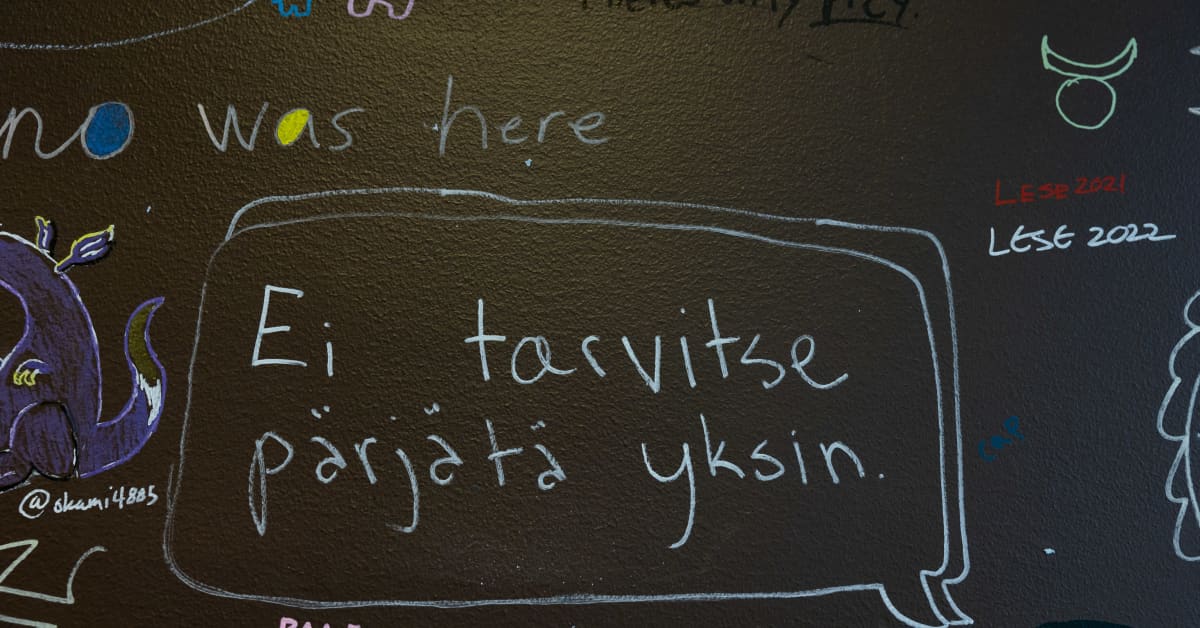 no was here
LESE 2021
LESE 2022
Ei tarvitse
pärjätä yksin.
@okami4885